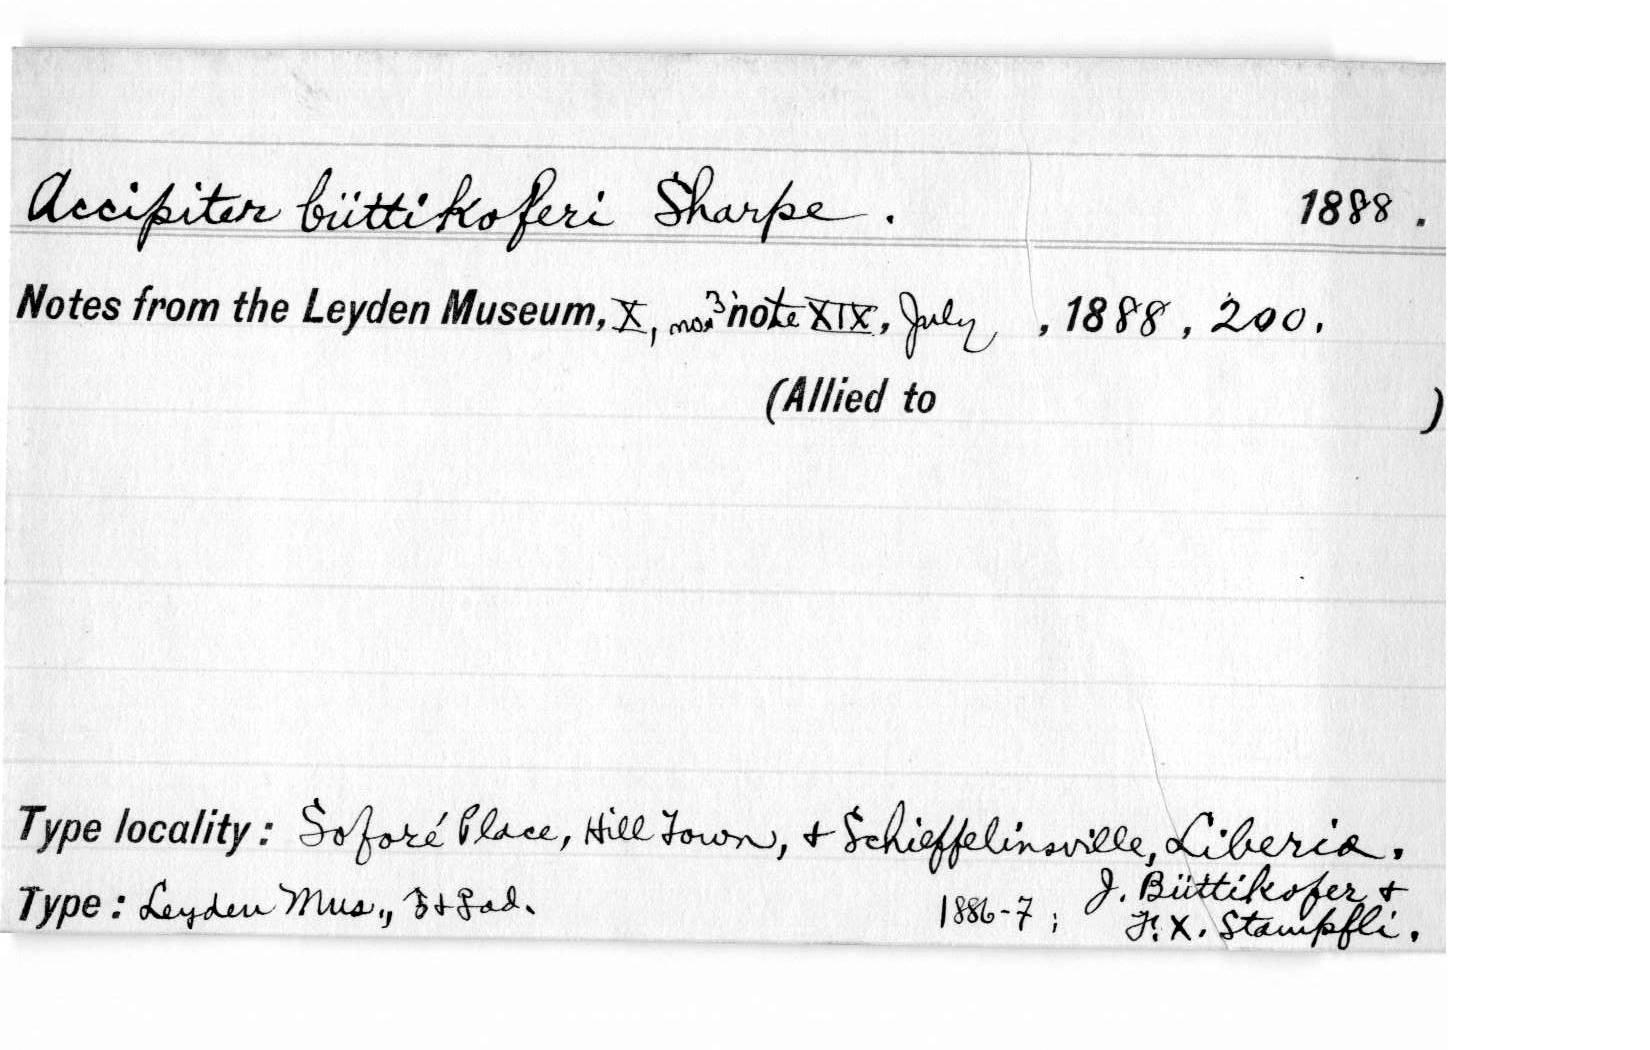 Accipiter büttikoferi Sharpe. 1888.
Notes from the Leyden Museum, X, no. 3 note XIX, July, 1888, 200.
(Allied to )
Type locality: Soforé Place, Hill Town, + Schieffelinsville, Liberia.
Type: Leyden Mus., ad. 1886-7; J. Büttikofer +
F. X. Stampfli.